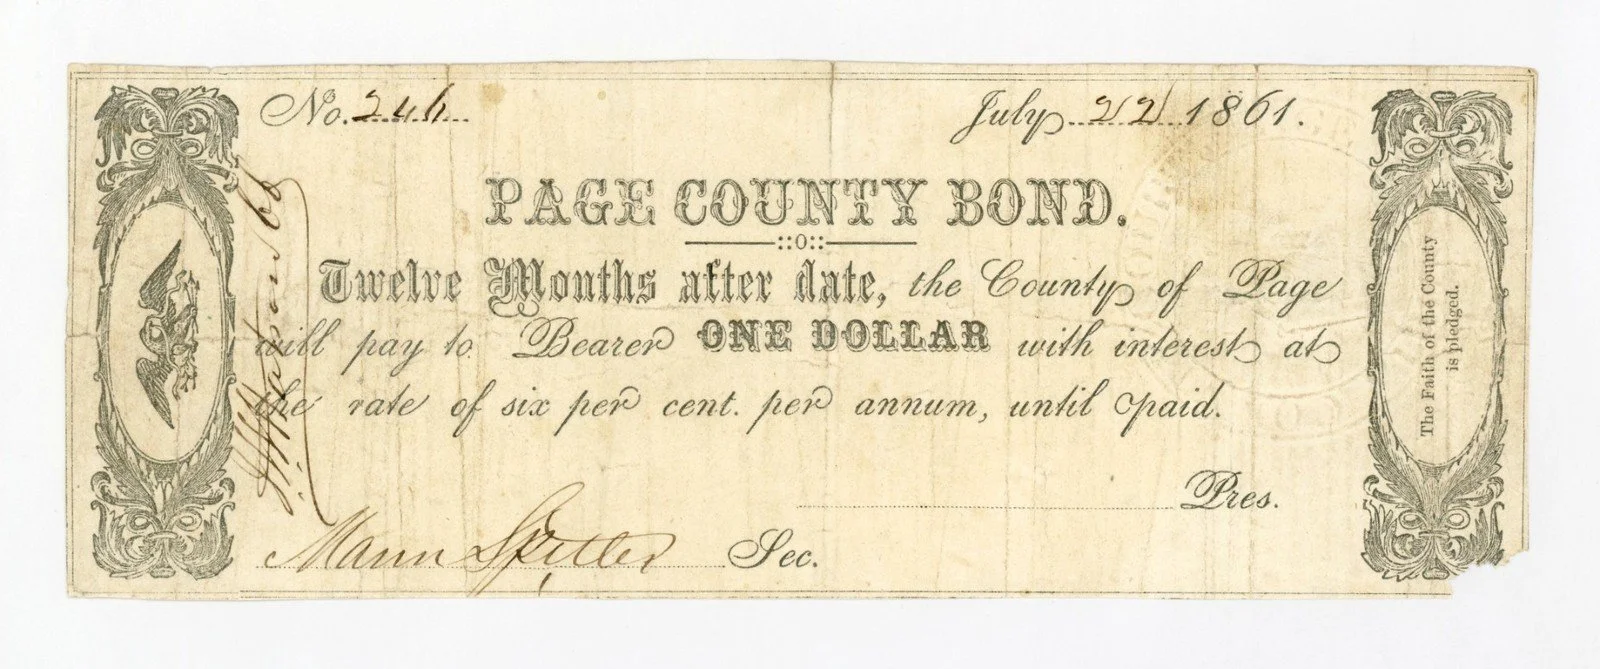 No. 246
July 22 1861.
PAGE COUNTY BOND.
Twelve Months after date, the County of Page
will pay to Bearer ONE DOLLAR with interest at
the rate of six per cent. per annum, until paid.
Pres.
Mann Spitler Sec.
The Faith of the County
is pledged.